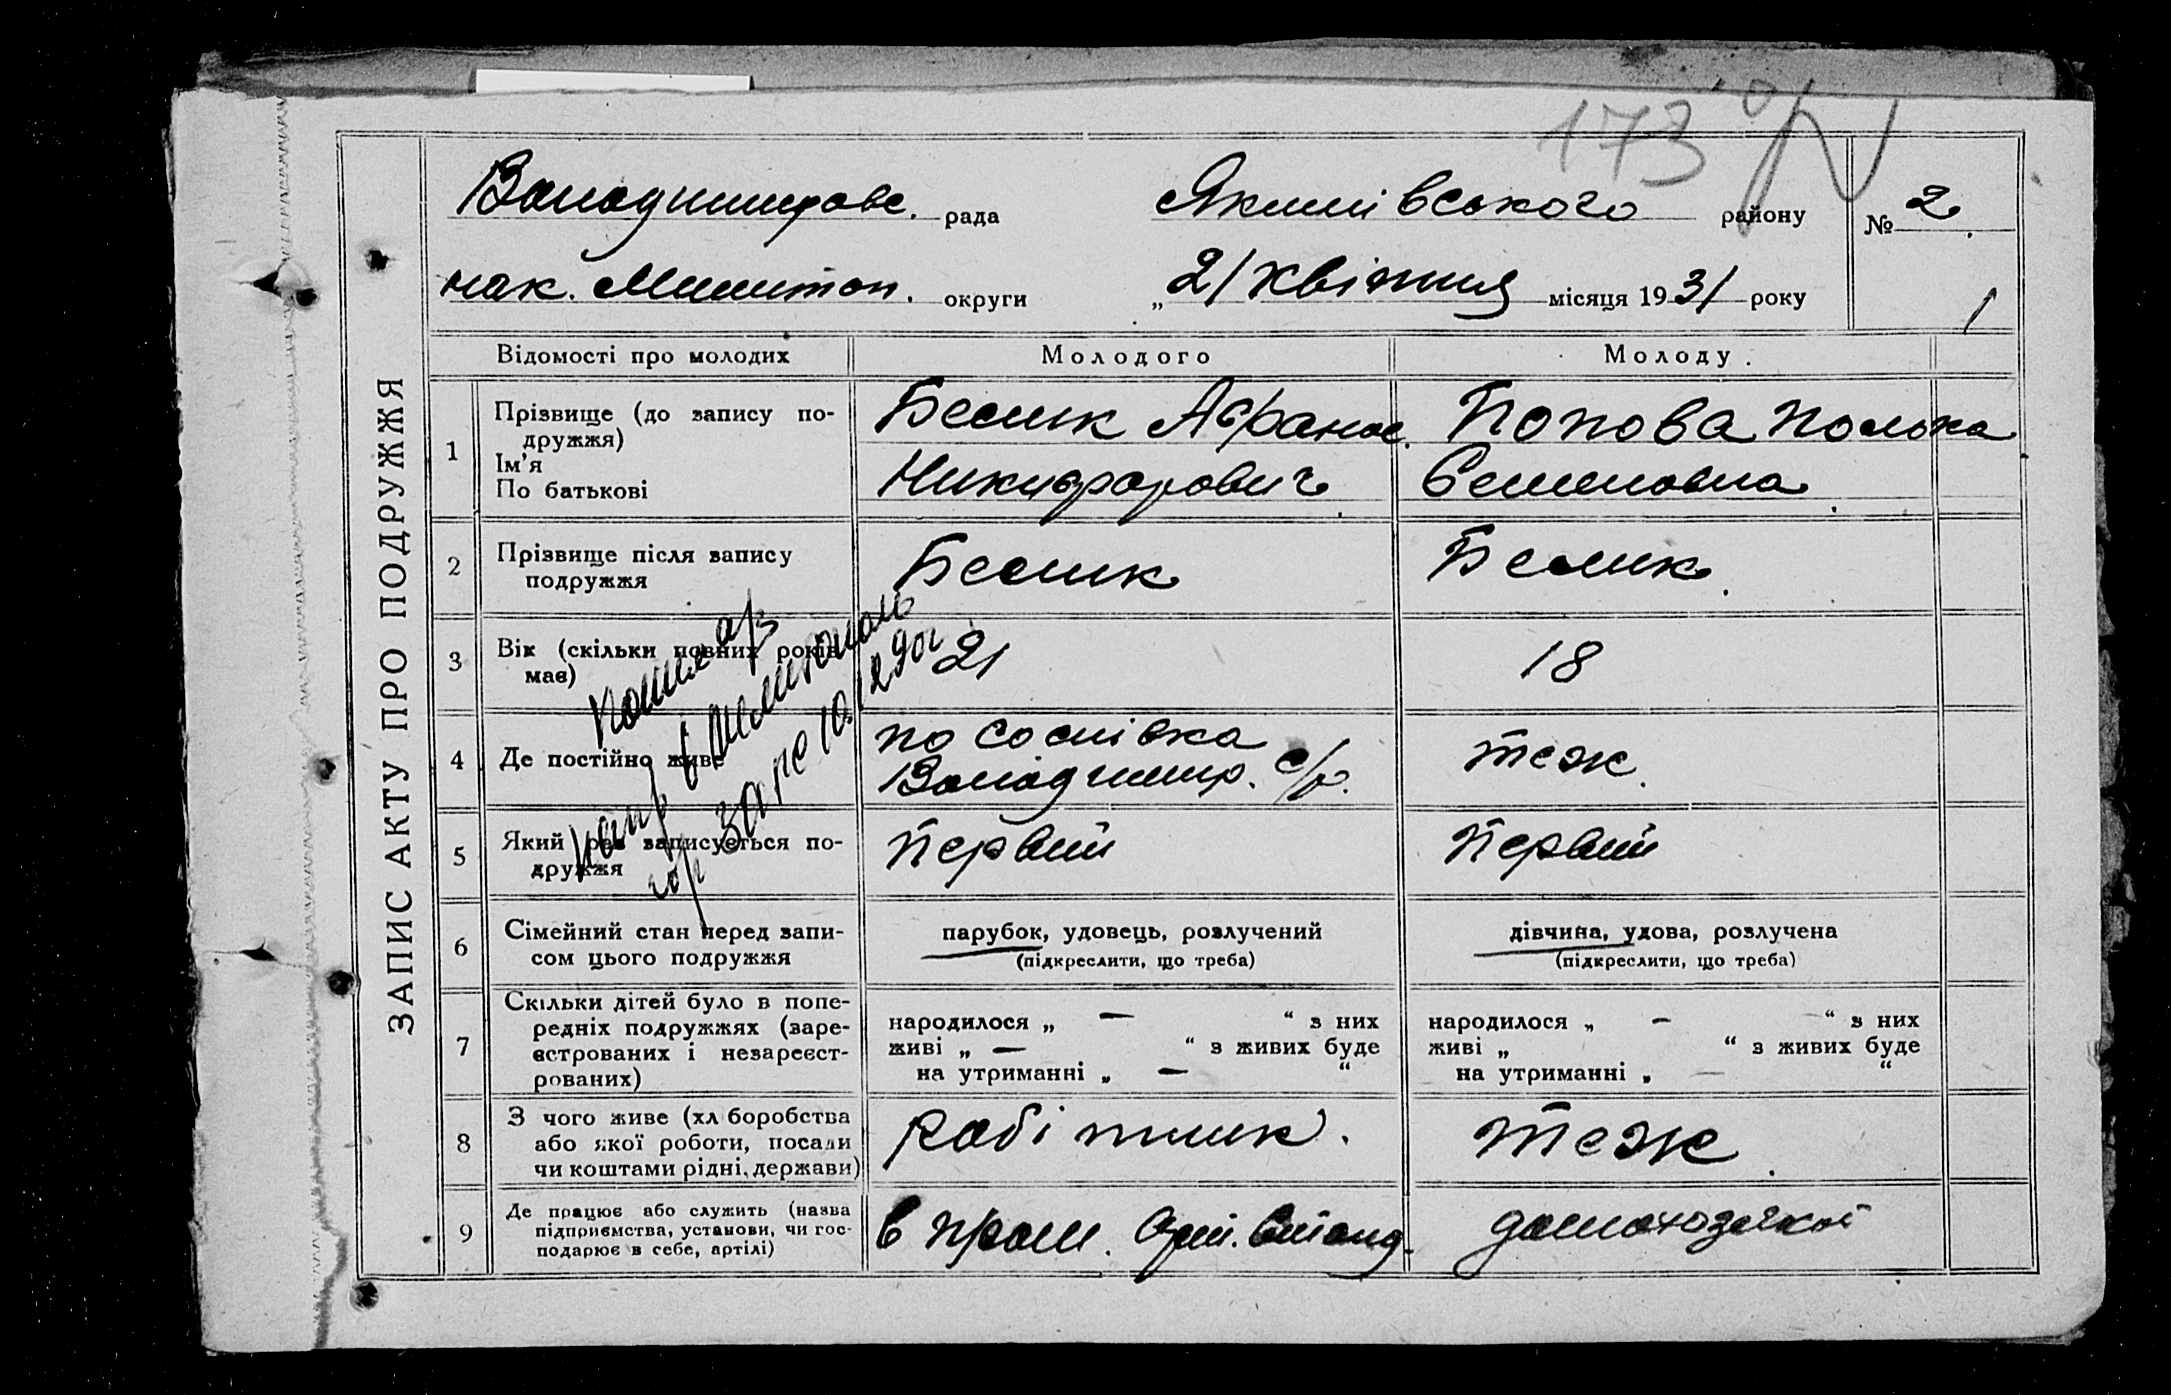 173
ЗАПИС АКТУ ПРО ПОДРУЖЖЯ
Володимировс. рада Якимівського району № 2
округи „21 квітня місяця 1931 року
Відомості про молодих Молодого Молоду
1 Прізвище (до запису по-
дружжя)
Ім'я
По батькові
Белик Афанас.
Никифорович
Попова
Семеновна
2 Прізвище після запису
подружжя
Белик Белик
3 Вік (скільки повних років
має)
21 18
4 Де постійно живе
Володимир. с/р.
теж
5 Який раз записується по-
дружжя
Первий Первий
6 Сімейний стан перед запи-
сом цього подружжя
парубок, удовець, розлучений
(підкреслити, що треба)
дівчина, удова, розлучена
(підкреслити, що треба)
7 Скільки дітей було в попе-
редніх подружжях (заре-
єстрованих і незареєст-
рованих)
народилося „ — “ з них
живі „ — “ з живих буде
на утриманні „ — “
народилося „ — “ з них
живі „ “ з живих буде
на утриманні „ — “
8 З чого живе (хл боробства
або якої роботи, посади
чи коштами рідні, держави)
робітник. теж
9 Де працює або служить (назва
підприємства, установи, чи гос-
подарює в себе, артілі)
в пром.